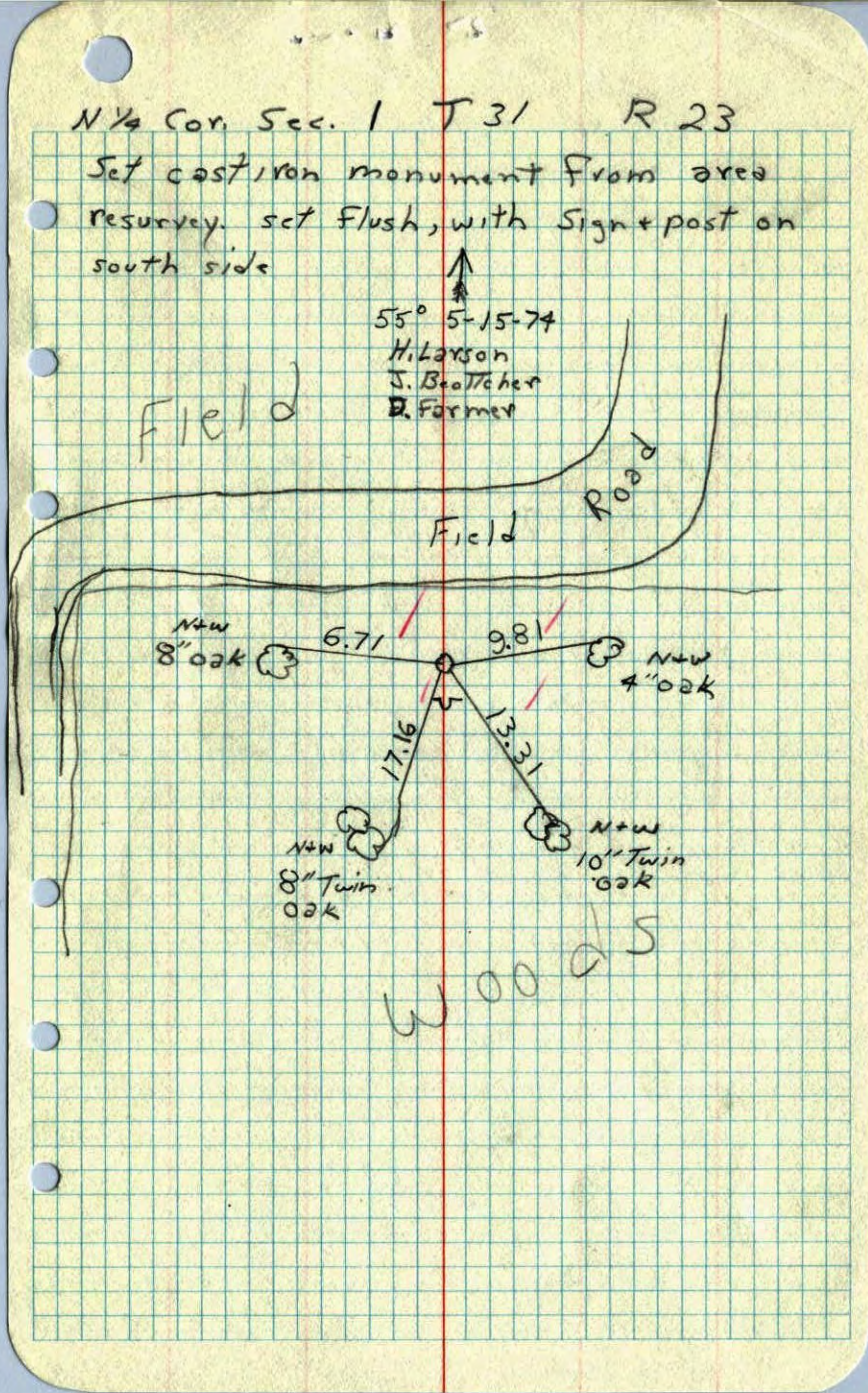 N 1/4 Cor. Sec. 1 T 31 R 23
Set cast iron monument from area
resurvey. set flush, with Sign + post on
south side
55° 5-15-74
H. Larson
J. Beottcher
D. Farmer
Field
Road
Field
N+W
8" oak
6.71
9.81
N+W
4" oak
17.16
13.31
N+W
8" Twin
oak
N+W
10" Twin
oak
Woods